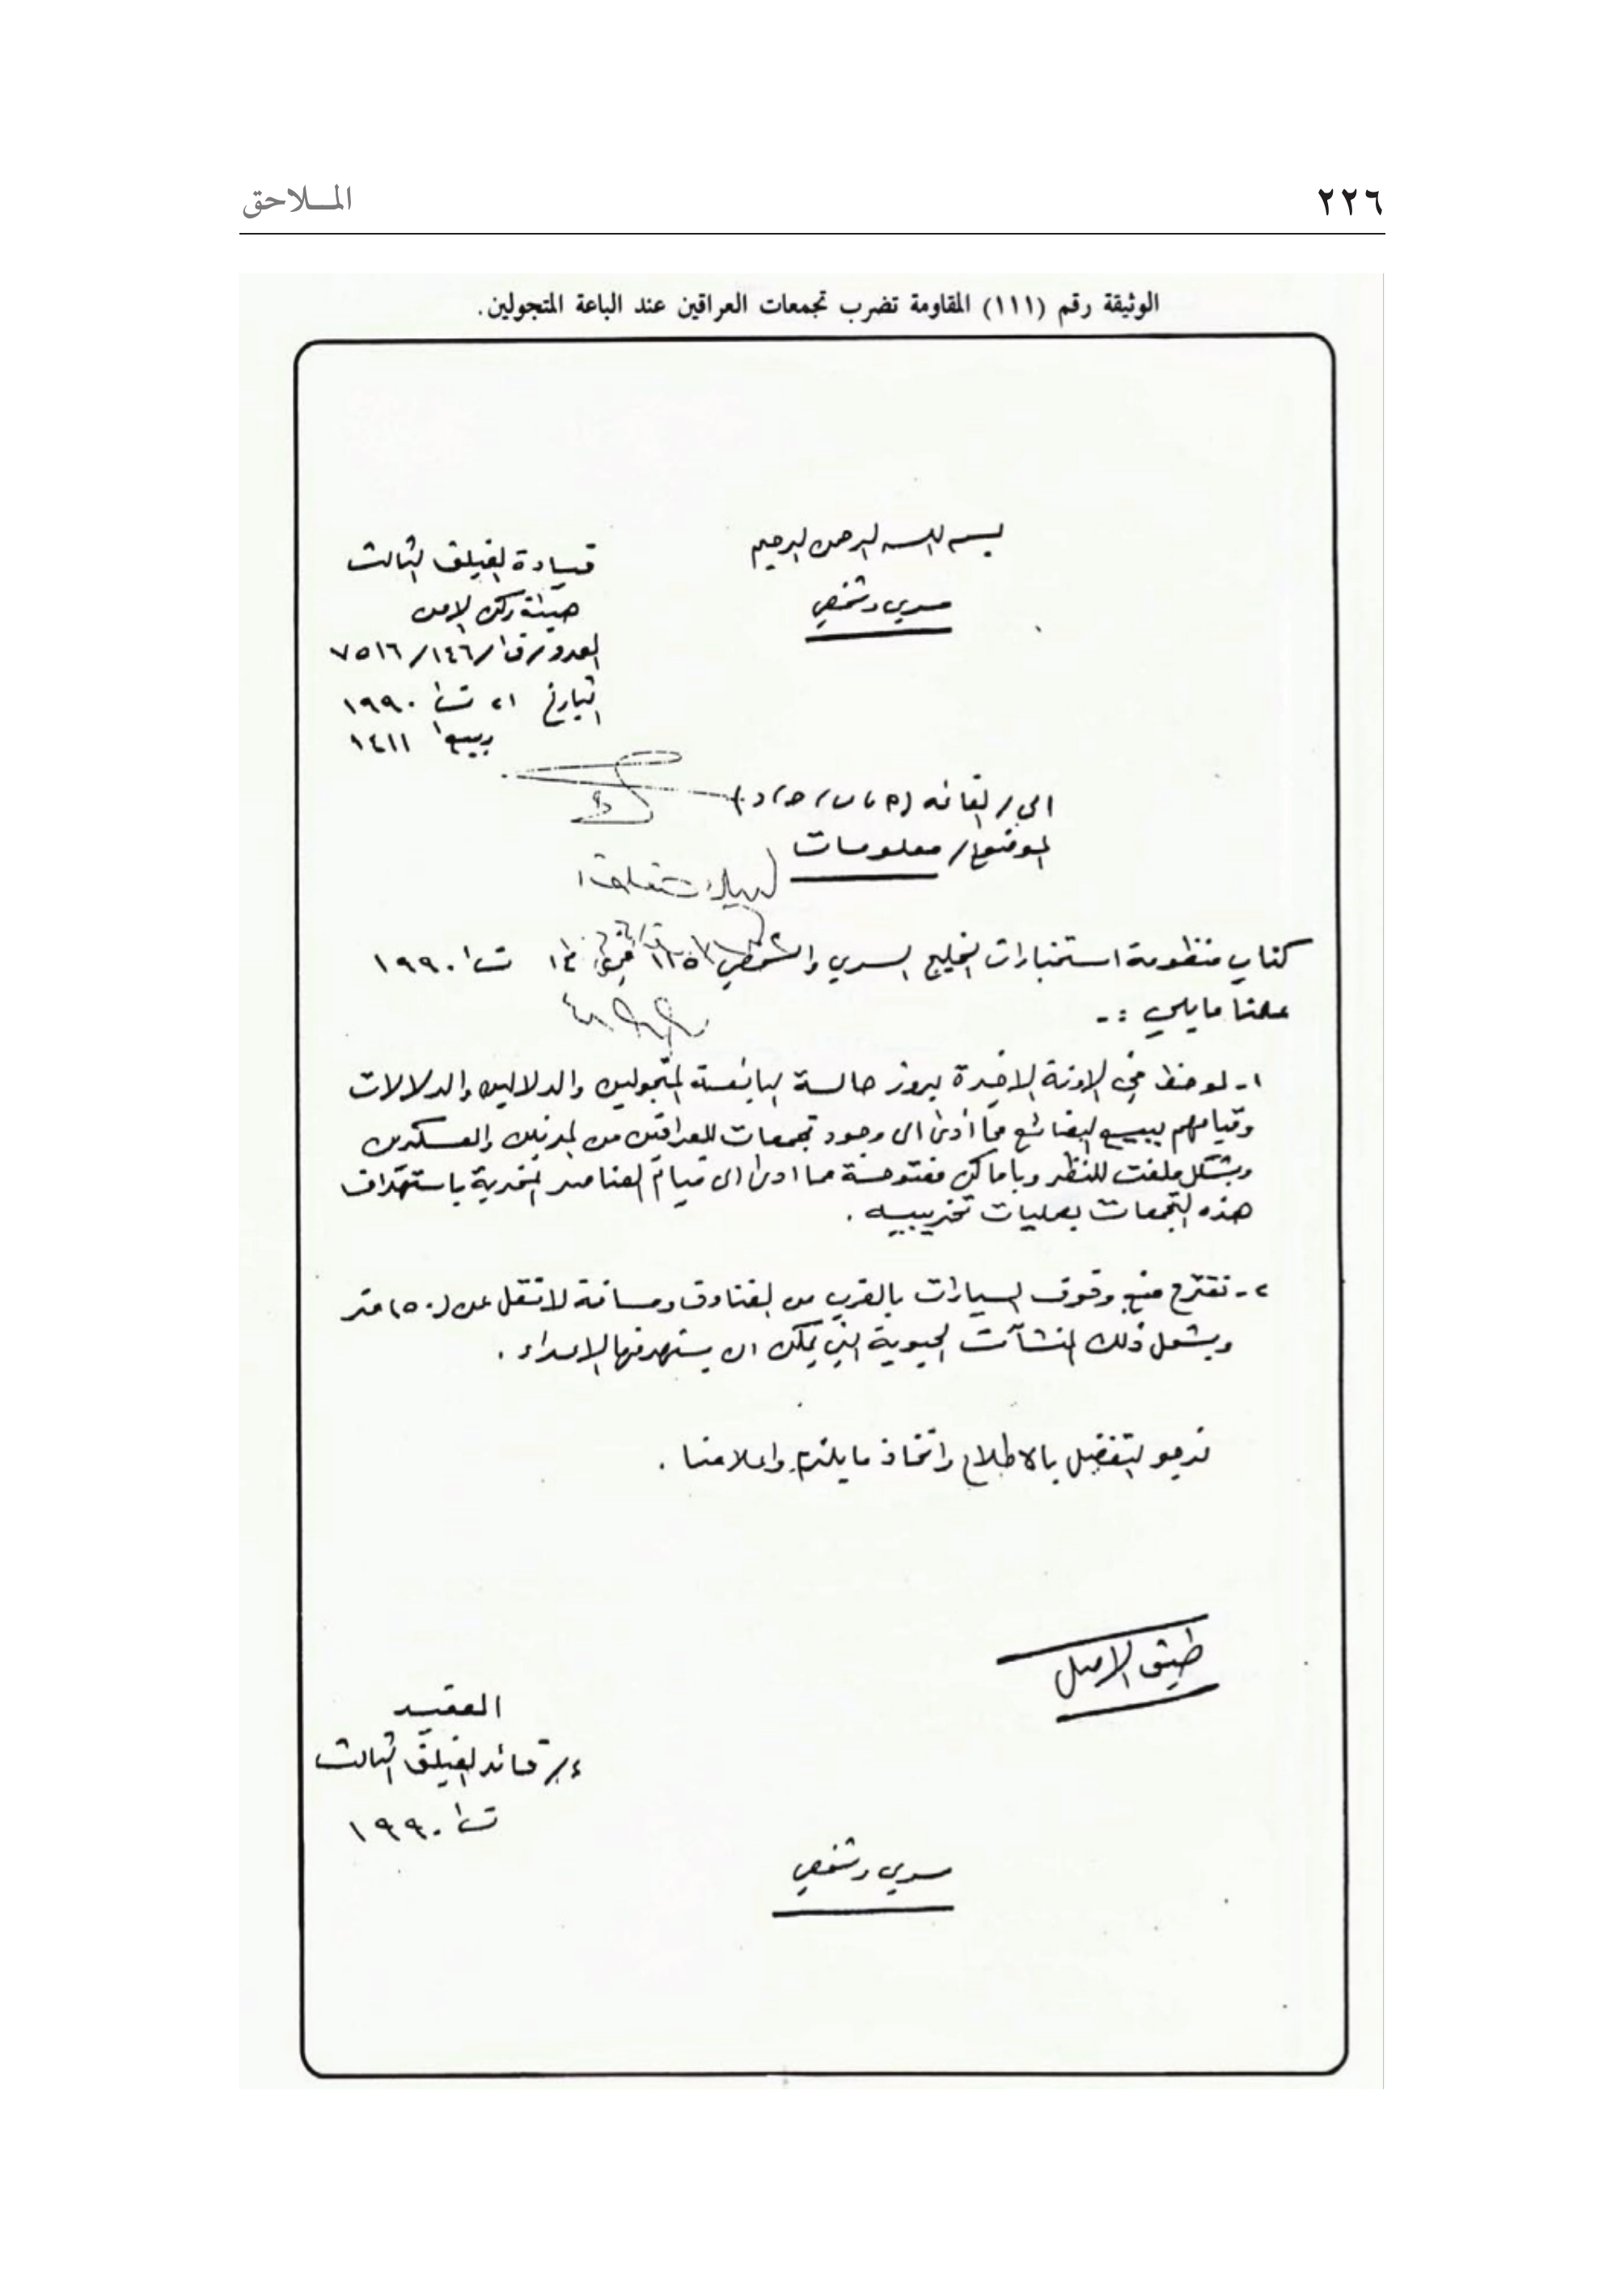 ٢٢٦
المـلاحق
الوثيقة رقم (١١١) المقاومة تضرب تجمعات العراقين عند الباعة المتجولين.
بسم الله الرحمن الرحيم
سري وشخصي
قيادة الفيلق الثالث
هيئة ركن الامن
العدد/ق١/١٤٦/٧٥١٦
التاريخ ٢١ ت١ ١٩٩٠
ربيع١ ١٤١١
الى/ القائمه
الموضوع/ معلومات
كتاب منظومة استخبارات الخليج السري والشخصي في ت١ ١٩٩٠
علمنا مايلي :-
١- لوحظ في الاونة الاخيرة بروز حالة البائعة المتجولين والدلالين والدلالات
وقيامهم ببيع البضائع مما أدى الى وجود تجمعات للعراقين من المدنين والعسكرين
وبشكل ملفت للنظر وباماكن مفتوحة مما ادى الى قيام العناصر المخربة باستهداف
هذه التجمعات بعمليات تخريبيه .
٢- نقترح منع وقوف السيارات بالقرب من الفنادق ومسافة لاتقل عن (٥٠) متر
ويشمل ذلك المنشآت الحيوية التي يمكن ان يستهدفها الاعداء .
نرجو التفضل بالاطلاع واتخاذ مايلزم واعلامنا .
طبق الاصل
العقيد
ع/ قائد الفيلق الثالث
ت١ ١٩٩٠
سري وشخصي